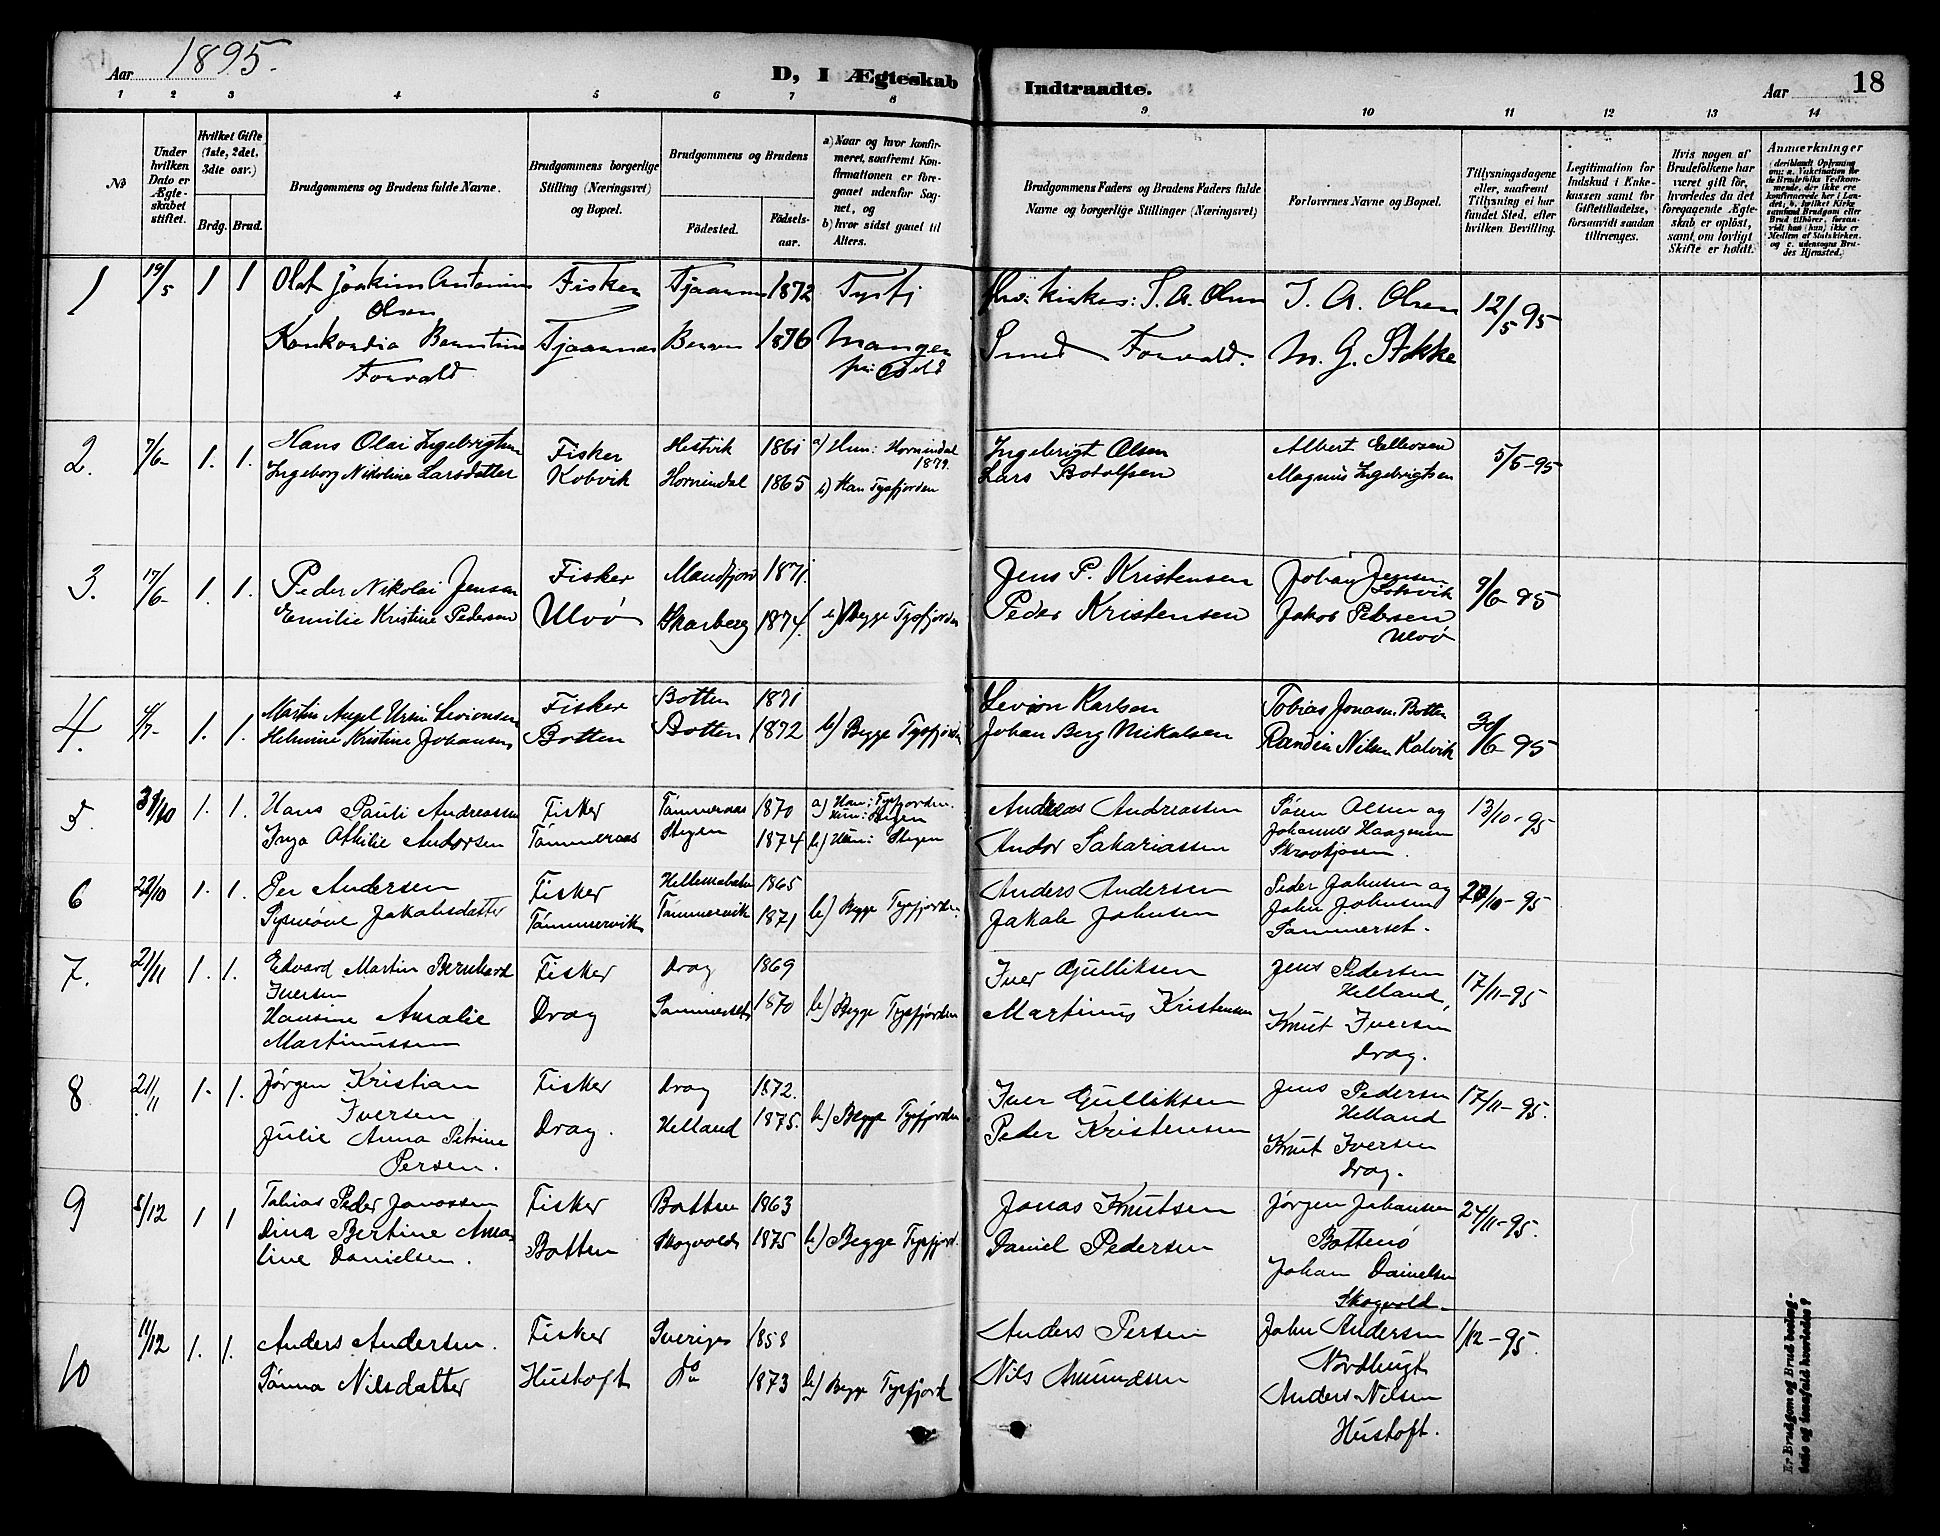 Aar 1895.
D, I Ægteskab Indtraadte.
Aar 18
1 2 3 4 5 6 7 8 9 10 11 12 13 14
№
Under hvilken Dato er Ægteskabet stiftet.
Hvilket Gifte (1ste, 2det, 3die osv.)
Brdg. Brud.
Brudgommens og Brudens fulde Navne.
Brudgommens borgerlige Stilling (Næringsvei) og Bopæl.
Brudgommens og Brudens
Fødested. Fødselsaar.
a) Naar og hvor konfirmeret, saafremt Konfirmationen er foregaaet udenfor Sognet, og
b) hvor sidst gaaet til Alters.
Brudgommens Faders og Brudens Faders fulde Navne og borgerlige Stillinger (Næringsvei)
Forlovernes Navne og Bopæl.
Tillysningsdagene eller, saafremt Tillysning ei har fundet Sted, efter hvilken Bevilling.
Legitimation for Indskud i Enkekassen samt for Giftetilladelse, forsaavidt saadan tiltrænges.
Hvis nogen af Brudefolkene har været gift før, hvorledes da det foregaaende Ægteskab er opløst, samt om lovligt Skifte er holdt.
Anmærkninger
1 19/5 1 1 Olaf Joakim Antonius Fisker Tjaarnes 1872 Tysfj Kirkes: T. A. Olsen T. A. Olsen 12/5 95
Olsen
Konkordia Berntine Tjaarnes Bergen 1876 Manger Smed Forvald. M. G. Stokke
Forvald
2. 7/6 1. 1. Hans Olai Ingebrigtsen Fisker Hestvik 1861 a) Hun: Hornindal 1879. Ingebrigt Olsen Albert Ellevsen 5/5-95
Ingeborg Nikoline Larsdatter Kobvik Hornindal 1865 b) Han Tysfjorden Lars Botolfsen Magnus Ingebrigtsen
3. 17/6 1. 1. Peder Nikolai Jensen Fisker Mandfjord 1871. Jens P. Kristensen Johan Jensen 9/6-95
Emilie Kristine Pedersen Ulvø Skarberg 1874. b) Begge Tysfjorden Peder Kristensen Jakob Petersen
Ulvø
4. 4/7 1. 1. Martin Angel Ursin Levionsen Fisker Botten 1871 Levion Karlsen Tobias Jonasen Botten 30/6-95
Helmine Kristine Johansen Botten Botten 1872 b) Begge Tysfjorden Johan Berg Nikolsen Randin Nilsen Kalvik
5. 31/10 1. 1. Hans Pauli Andreassen Fisker Tømmernæs 1870 a) Han: Tysfjorden. Andreas Andreassen Søren Olsen og 13/10-95
Hun: Stegen Johannes Haagensen
Inga Othilie Andorsen Tømmernæs Stegen 1874 b) Hun: Stegen Andor Sakariassen Skrovkjosen.
6 22/10 1. 1. Per Andersen Fisker Hellemobotn 1865 Anders Andersen Peder Johnsen og 20/10-95
Synnøve Jakobsdatter Tømmervik Tømmervik 1871 b) Begge Tysfjorden. Jakob Johnsen John Johnsen
Sommerset.
7. 21/11 1. 1. Edvard Martin Bernhard Fisker Drag 1869 Iver Gulliksen Jens Pedersen 17/11-95
Iversen Helland,
Hansine Amalie Drag Sommerset 1870 b) Begge Tysfjorden Martinus Kristensen Knut Iversen
Martinussen Drag.
8 21/11 1. 1. Jørgen Kristian Fisker Drag 1872. Iver Gulliksen Jens Pedersen 17/11-95.
Iversen Helland
Julie Anna Petrine Drag. Helland 1875. b) Begge Tysfjorden Peder Kristensen Knut Iversen
Persen. Drag.
9 5/12 1 1 Tobias Peder Jonassen Fisker Botten 1863 Jonas Knutsen Jørgen Johansen 24/11-95.
Dina Bertine Amaline Danielsen. Botten Skogvold 1875 b) Begge Tysfjord. Daniel Pedersen Bottenø
Johan Danielsen
Skogvold
10 11/12 1. 1. Anders Andersen. Fisker Sverige 1858 Anders Persen John Andersen 1/12-95.
Nordbugt
Sønna Nilsdatter Hustoft Do 1873 b) Begge Tysfjord Nils Amundsen Anders Nilsen
Hustoft.